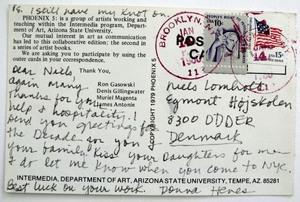 P.S. I still have my Knot on.
PHOENIX 5: is a group of artists working and
teaching within the Intermedia program, Department
of Art, Arizona State University.
Our mutual interest in art as communication
has led to this collaborative edition: the second in
a series of artist books.
We are asking you to participate by using the
outer cards in your correspondence.
Thank You,
Ron Gasowski
Denis Gillingwater
Muriel Magenta
James Antonie
COPYRIGHT 1979 PHOENIX 5
BROOKLYN,
JAN
11
POS
CA
15c
Dear Niels
again many
thanks for your
help & hospitality!
send you greetings for
the Decade for you &
your family. Kiss your Daughters for me.
do let me know when you come to NYC.
Best luck on your work. Donna Henes
Niels Lomholt
Egmont Højskolen
8300 ODDER
Denmark
INTERMEDIA, DEPARTMENT OF ART, ARIZONA STATE UNIVERSITY, TEMPE, AZ. 85281